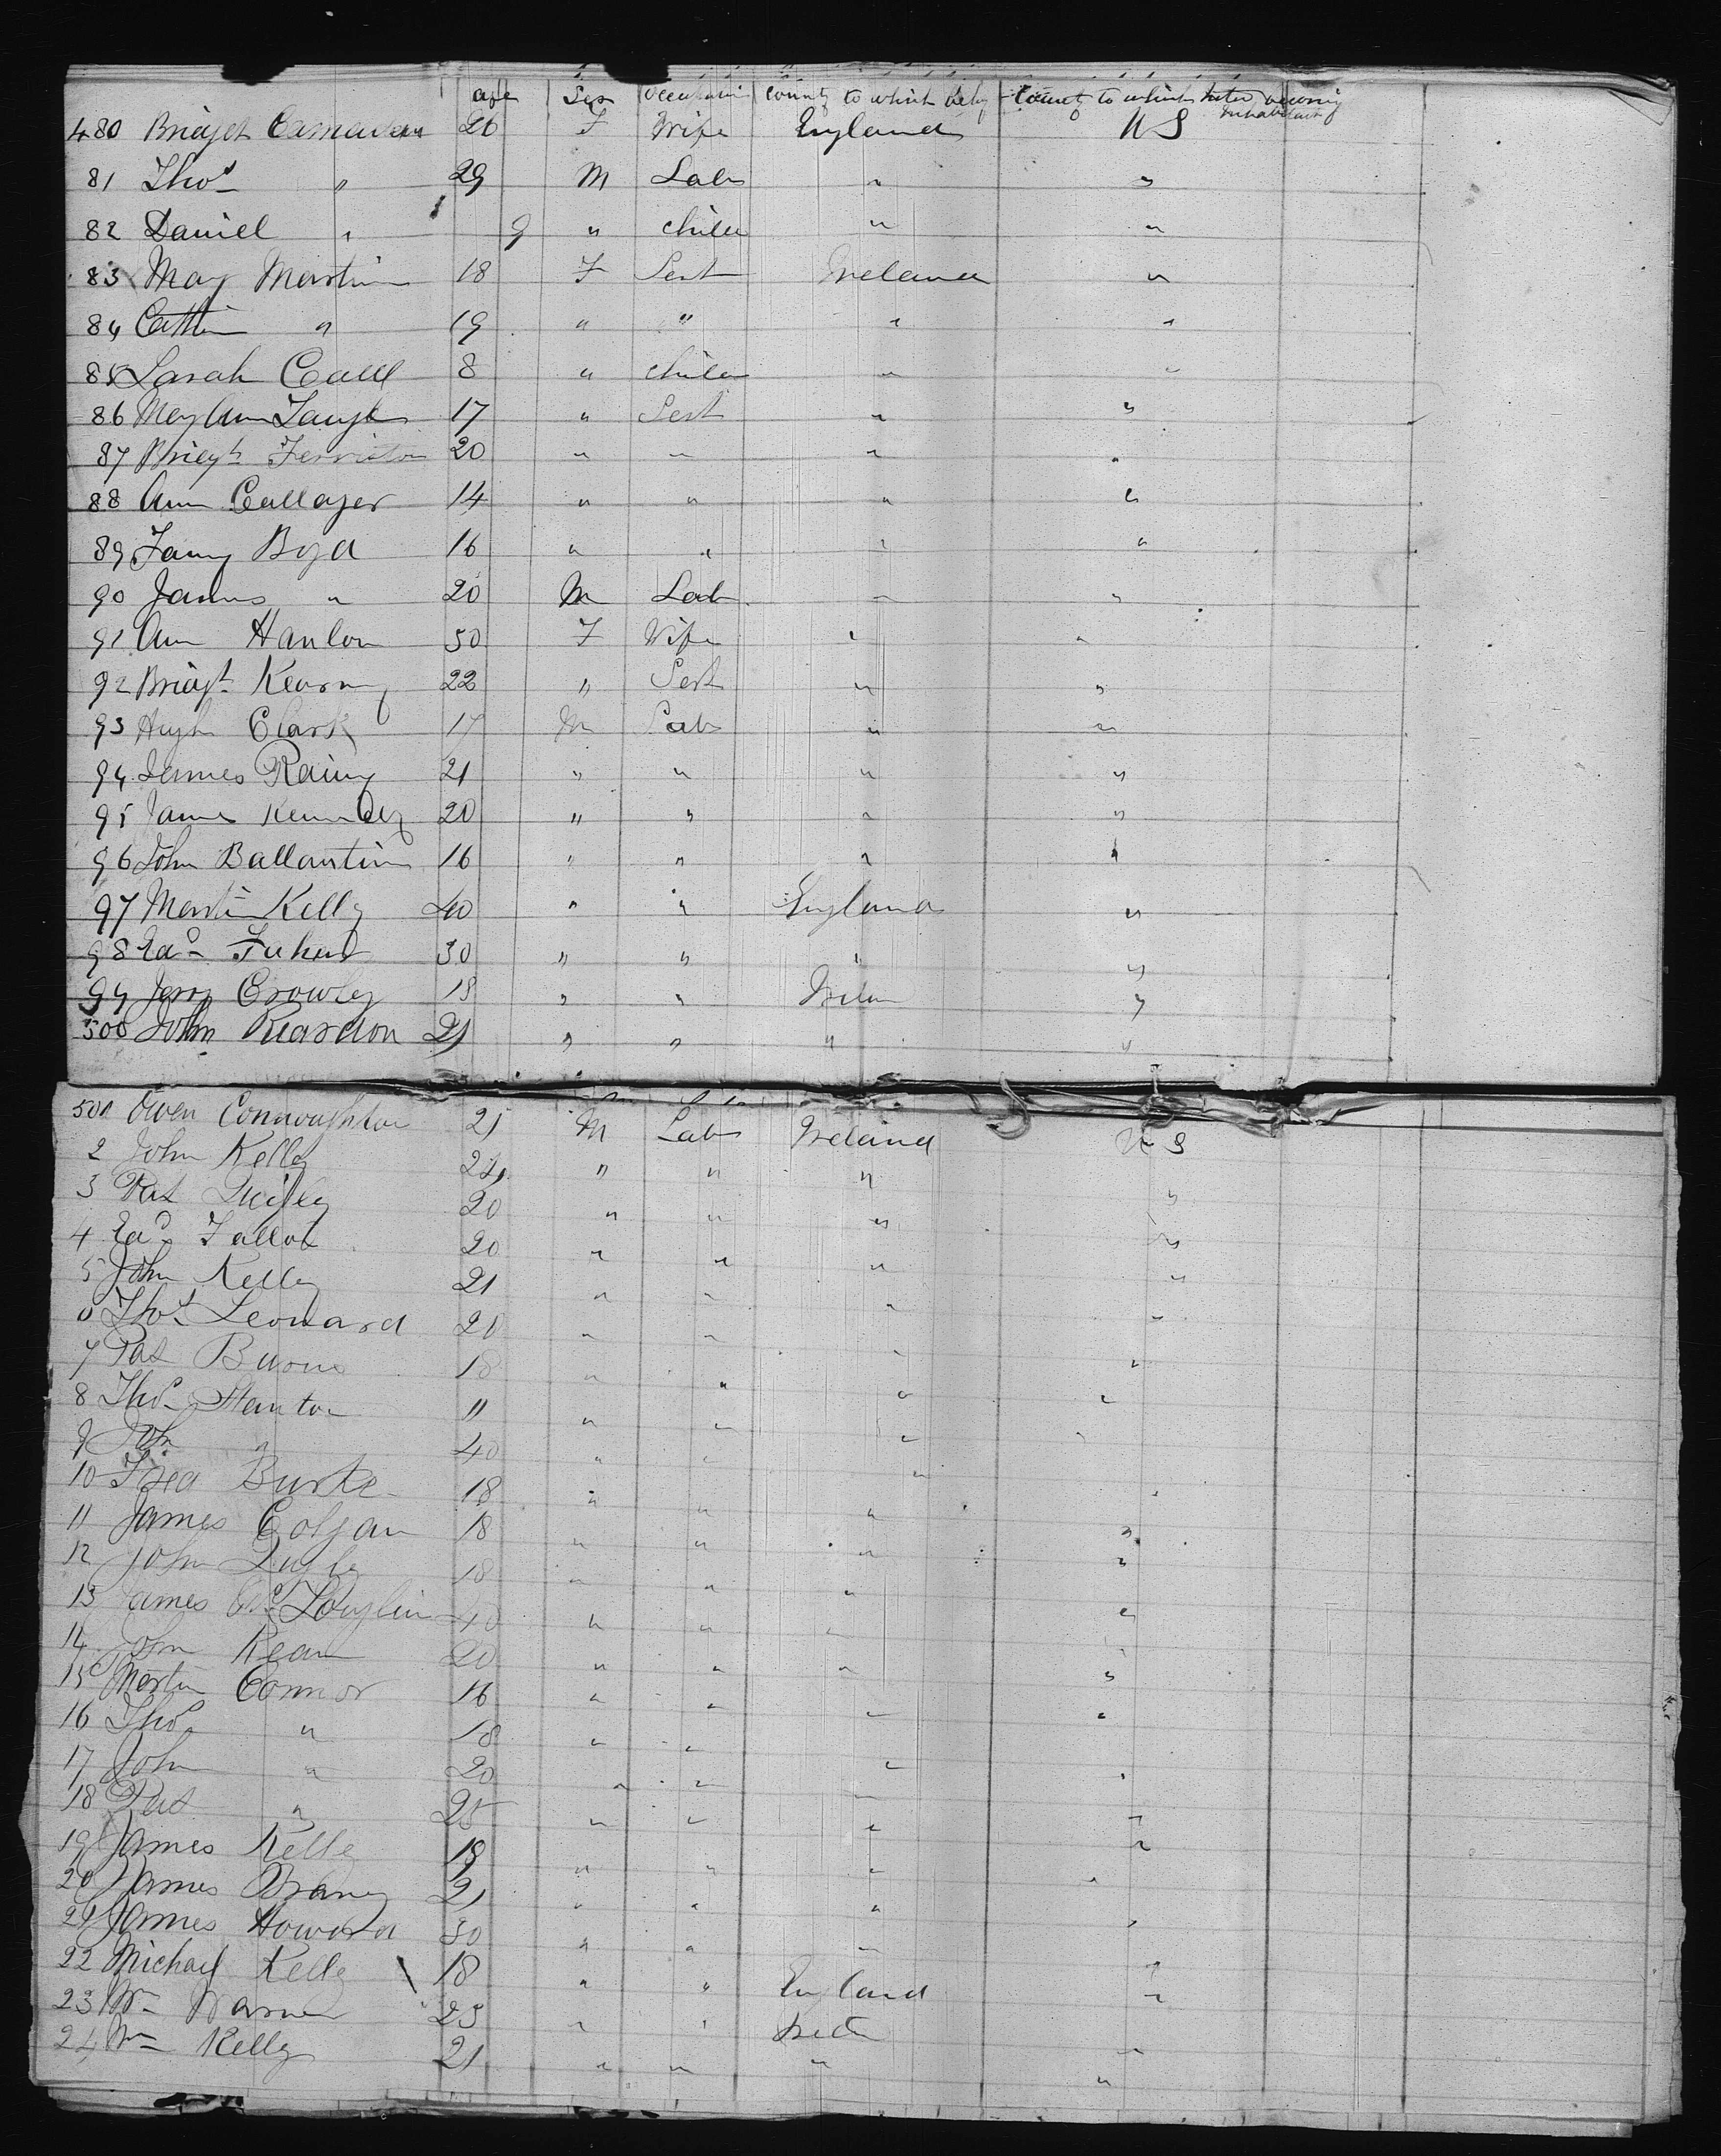 age Sex Occupation County to which they belong County to which inhabitants
480 Bridget 26 F Wife England U S
81 Thos " 29 M Lab " "
82 Daniel " 9 " child " "
83 May Martin 18 F Sert Ireland "
84 Cathn " 19 " " " "
85 Sarah Call 8 " child " "
86 Mary Ann 17 " Sert " "
87 Bridgt 20 " " " "
88 Ann Callager 14 " " " "
89 Fanny Boyd 16 " " " "
90 James " 20 M Lab " "
91 Ann Hanlon 50 F Wife " "
92 Bridgt Kearny 22 " Sert " "
93 Hugh Clark 17 M Lab " "
94 James Rainy 21 " " " "
95 James Kennedy 20 " " " "
96 John Ballantine 16 " " " "
97 Martin Kelly 40 " " England "
98 Ed 30 " " " "
99 Jerry Crowley 18 " " Irelan "
500 John Reardon 21 " " " "
501 Owen Connaughton 21 M Lab Ireland U S
2 John Kelly 24 " " " "
3 Pat Quigley 20 " " " "
4 Ed Fallot 20 " " " "
5 John Kelly 21 " " " "
6 Thos Leonard 20 " " " "
7 Pat Burns 18 " " " "
8 Thos Stanton 11 " " " "
9 John " 40 " " " "
10 Fred Burke 18 " " " "
11 James Colgan 18 " " " "
12 John Quigley 18 " " " "
13 James McLoughlin 40 " " " "
14 John Kean 20 " " " "
15 Martin Connor 16 " " " "
16 Thos " 18 " " " "
17 John " 20 " " " "
18 Pat " 25 " " " "
19 James Kelly 19 " " " "
20 James 21 " " " "
21 James Howard 30 " " " "
22 Michael Kelly 18 " " England "
23 Wm Warner 23 " " "
24 Wm Kelly 21 " " " "